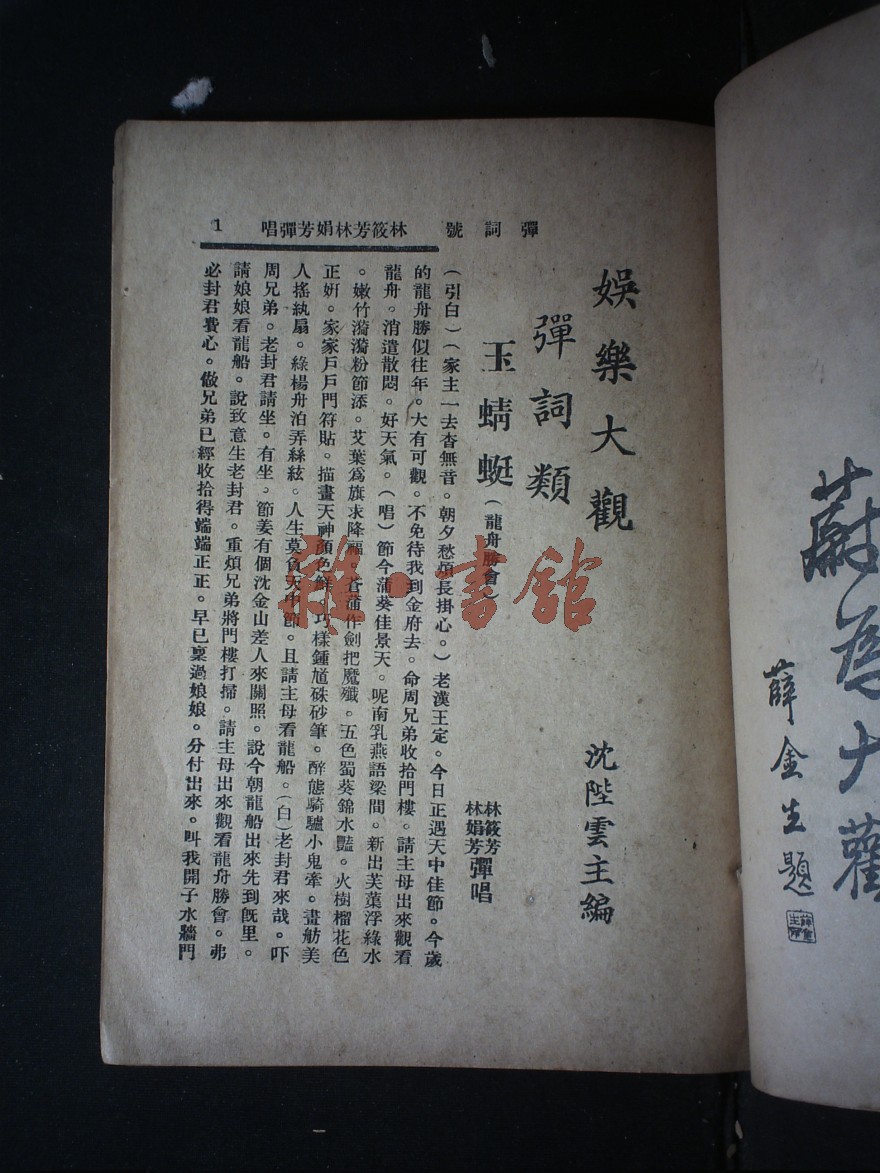 蔚為大觀
薛金生題
彈詞號
林筱芳林娟芳彈唱
1
娛樂大觀
沈陛雲主編
彈詞類
玉蜻蜓(龍舟勝會)
林筱芳
林娟芳
彈唱
(引白)(家主一去杳無音。朝夕愁煩長掛心。)老漢王定。今日正遇天中佳節。今歲
的龍舟勝似往年。大有可觀。不免待我到金府去。命周兄弟收拾門樓。請主母出來觀看
龍舟。消遣散悶。好天氣。(唱)節今蒲葵佳景天。呢南乳燕語梁間。新出芙蕖浮綠水
。嫩竹漪漪粉節添。艾葉爲旗求降福。蒼蒲作劍把魔殲。五色蜀葵錦水豔。火樹榴花色
正妍。家家戶戶門符貼。描畫天神顏色鮮。巧樣鍾馗硃砂筆。醉態騎驢小鬼牽。畫舫美
人搖紈扇。綠楊舟泊弄絲絃。人生莫負天中節。且請主母看龍船。(白)老封君來哉。吓
周兄弟。老封君請坐。有坐。節姜有個沈金山差人來關照。說今朝龍船出來先到旣里。
請娘娘看龍船。說致意生老封君。重煩兄弟將門樓打掃。請主母出來觀看龍舟勝會。弗
必封君費心。做兄弟已經收拾得端端正正。早已稟過娘娘。分付出來。叫我開子水牆門
雜·書館